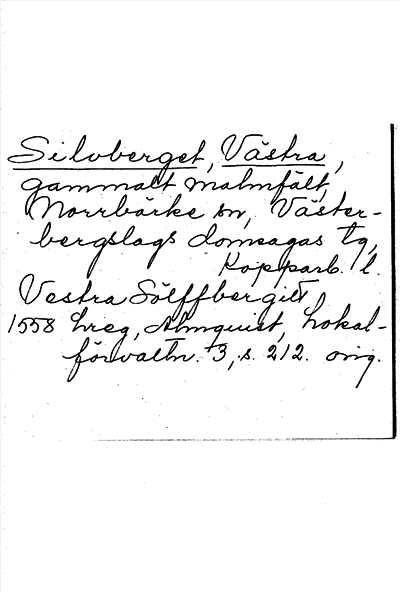 Silvberget, Västra,
gammalt malmfält,
Norrbärke sn, Väster-
bergslags domsagas tg,
Kopparb. l.
Vestra Sölffbergitt,
1558 hreg, Almquist, Lokal-
förvaltn. 3, s. 212. orig.